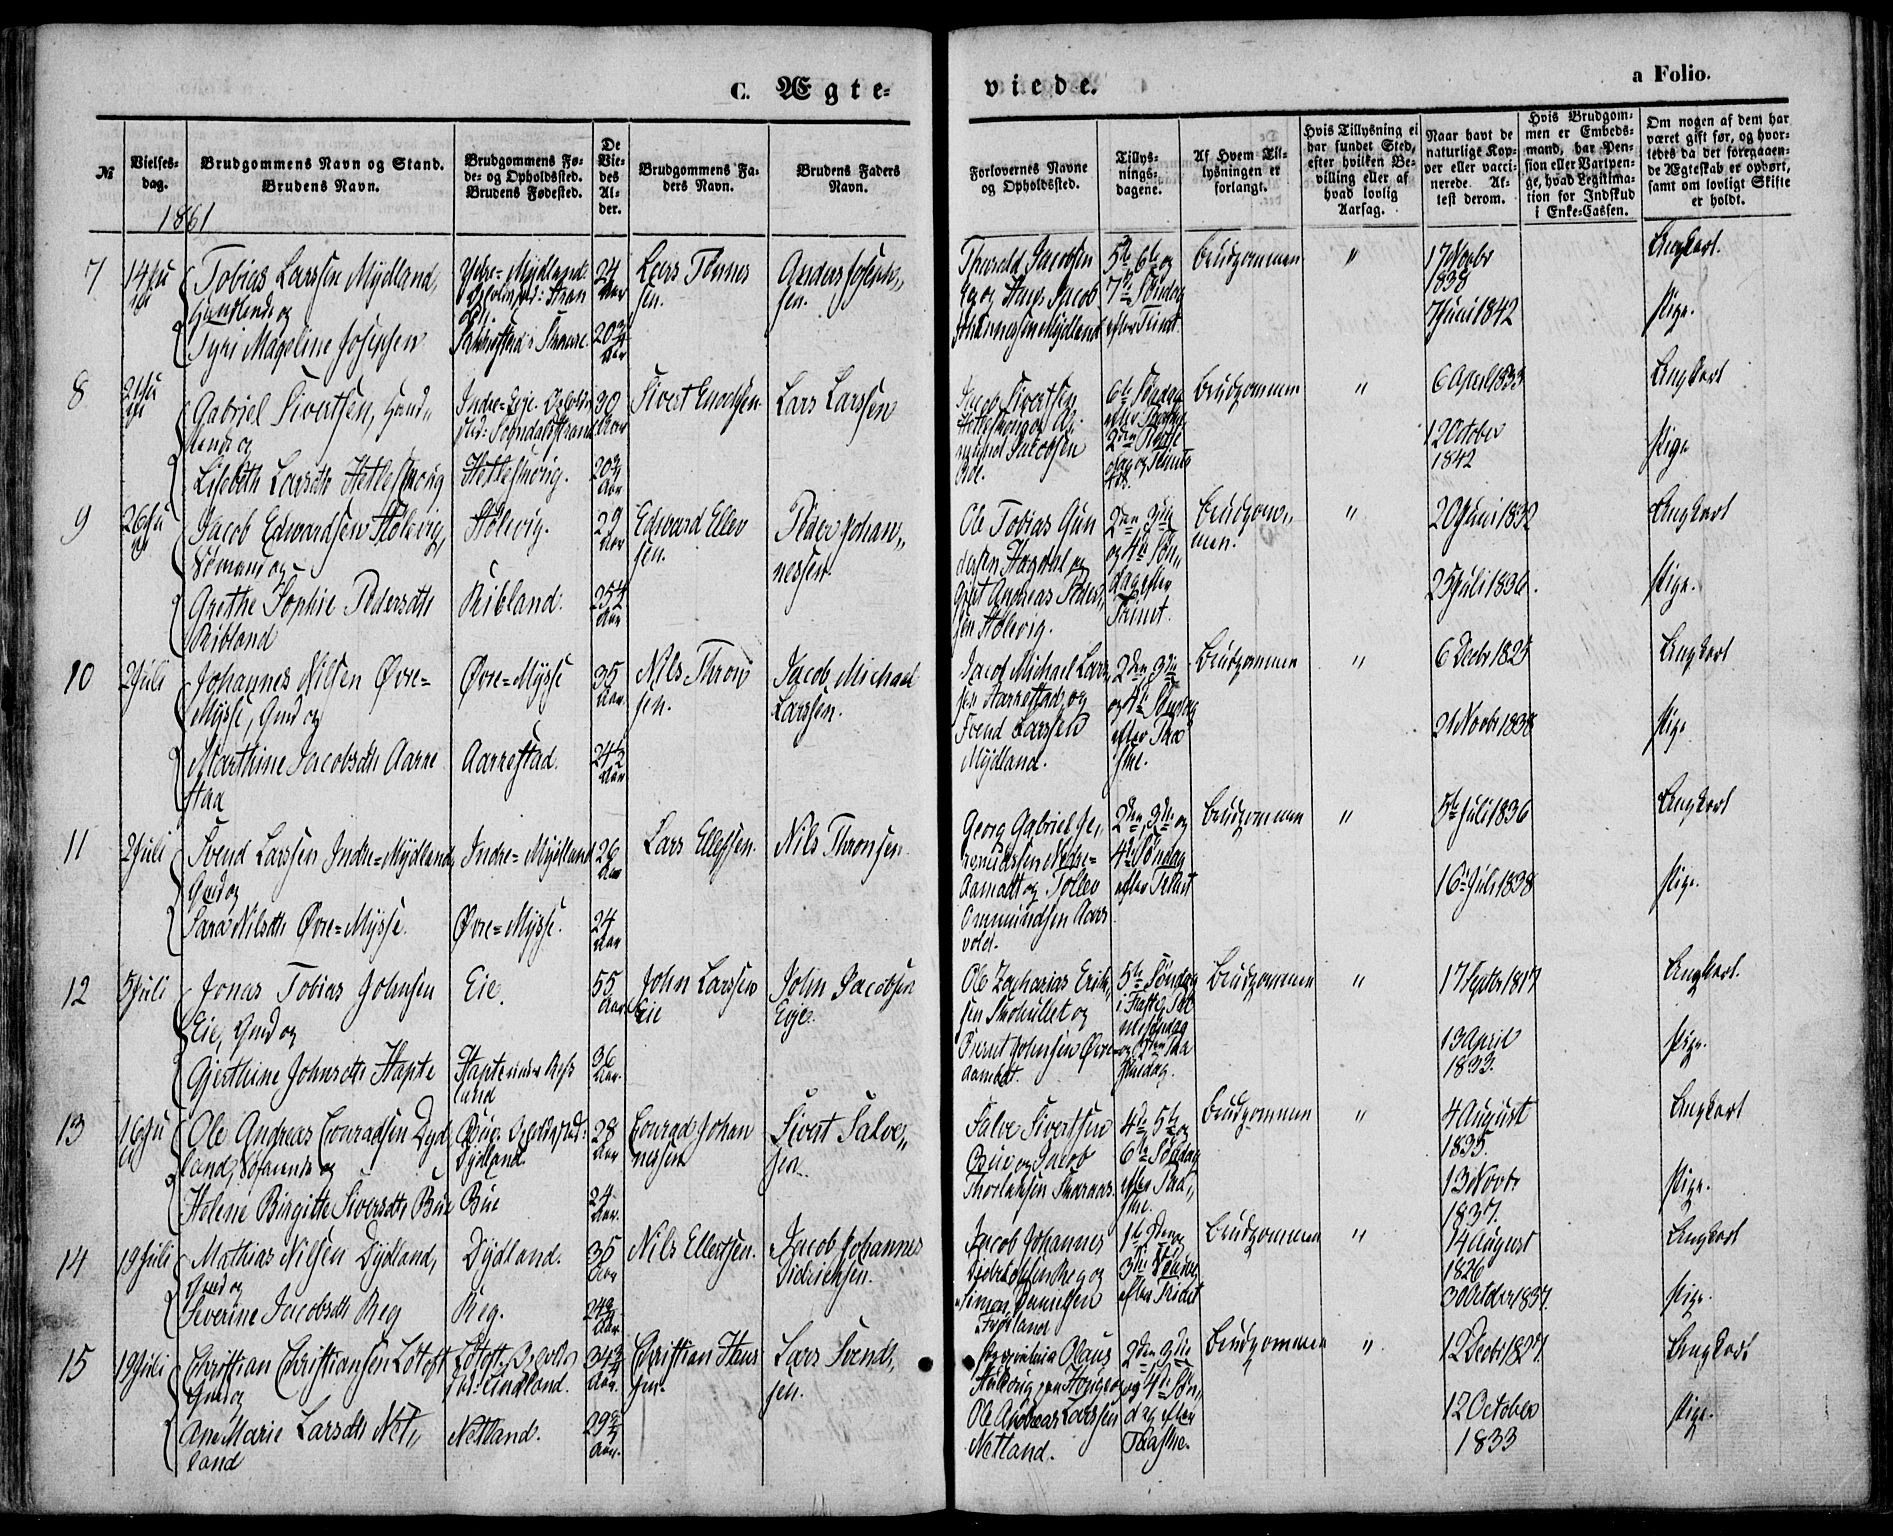 C. Ægte-
viede.
a Folio.
№
Vielses-
dag.
Brudgommens Navn og Stand.
Brudens Navn.
Brudgommens Fø-
de- og Opholdssted.
Brudens Fødested.
De
Vie-
des
Al-
der.
Brudgommens Fa-
ders Navn.
Brudens Faders
Navn.
Forlovernes Navne
og Opholdssted.
Tillys-
nings-
dagene.
Af Hvem Til-
lysningen er
forlangt.
Hvis Tillysning ei
har fundet Sted,
efter hvilken Be-
villing eller af
hvad lovlig
Aarsag.
Naar havt de
naturlige Kop-
per eller vacci-
nerede. At-
test derom.
Hvis Brudgom-
men er Embeds-
mand, har Pen-
sion eller Vartpen-
ge, hvad Legitima-
tion for Indskud
i Enke-Cassen.
Om nogen af dem har
været gift før, og hvor-
ledes da det foregaaen-
de Ægteskab er ophørt,
samt om lovligt Skifte
er holdt.
1861
7
14 Ju
ni
Tobias Larssen Mydland,
Handlende og
Tyri Mageline Josepsen
Ydre=Mydland
24
Aar
20¾
Aar
Lars Tønnes
sen.
Anders Joseph„
sen.
Jacobsen
Jacob
Johannessen Mydland
5te 6te og
7de Søndag
efter Trint.
Brudgommen
"
17 Novbr
1838
7 Juni 1842
Ungkarl.
Pige.
8
21 Ju
ni
Gabriel Sivertsen, Hand„
lende og
Lisebeth Larsdtr Hetleskroug
Indre=Eeje
Sogndalsstrand
Hetleskroug.
30
Aar
20¾
Aar
Sivert Enochsen
Lars Larssen
Jacob Sivertsen
Jacobsen
6te Søndag
2den
dag og Trint.
Brudgommen
"
6 April 1833
12 October
1842
Ungkarl
Pige
9
26 Ju
ni
Jacob Edwardsen Hølevig,
Sømand og
Grethe Sophie Pedersdtr
Ribland
Hølevig.
Ribland.
29
Aar
25¼
Aar
Edward Ellev
sen.
Peder Johan„
nessen
Ole Tobias Gun
dersen Haydal og
Gert Andreas Peder„
sen Hølevig.
2den 3die
og 4de Søn„
dag efter
Trint.
Brudgom„
men.
"
20 Juni 1832
25 Juli 1836.
Ungkarl
Pige.
10
2 Juli
Johannes Nilsen Øvre=
Mysse, Gmd og
Marthine Jacobsdtr Aarre
stad
Øvre=Mysse
Aarrestad.
35
Aar
24½
Aar
Nils Thron
sen.
Jacob Michael
Larssen.
Jacob Michael Lars
sen Aarrestad, og
Svend Larssen
Mydland.
2den 3die
og 4de Søndag
efter Paa
ske.
Brudgommen
"
6 Decbr 1825
21 Novbr 1838
Ungkarl
Pige
11
2 Juli
Svend Larssen Indre=Mydland,
Gmd og
Sara Nilsdtr Øvre=Mysse.
Indre=Mydland
Øvre=Mysse.
26
Aar
24
Aar
Lars Ellefsen.
Nils Thronsen
Georg Gabriel Je„
remiassen Nedre=
Aamodt og Tollev
Ommundsen Aars
vold.
2den, 3die og
4de Søndag
efter Trint
Brudgommen
"
5te Juli 1836
16 Juli 1838
Ungkarl
Pige.
12
5 Juli
Jonas Tobias Johnsen
Eie, Gmd og
Gjerthine Johnsdtr Hapte
Eie.
Hapte under Refs
land
55
Aar
36
Aar.
John Larssen
Eie
John Jacobsen
Eeje.
Ole Zacharias Erik„
sen Skohullet og
Bernt Johnsen Øvre
Aamodt.
5te Søndag
i Faste, Pal
mesøndag
og 2den Paa
skedag.
Brudgommen
"
17 Septbr 1817
13 April
1833.
Ungkarl.
Pige.
13
16 Ju
li
Ole Andreas Conradsen Dyd
land, Sømand og
Helene Birgitte Siversdtr Bue
Bue. Opholdssted:
Dydland.
Bue
28
Aar
24
Aar.
Conrad Johan
nessen
Sivert Salve„
sen.
Salve Sivertsen
Bue og Jacob
Thorlaksen Skaraas.
4de 5te og
6te Søndag
efter Paa„
ske.
Brudgommen
"
4 August
1835.
13 Novbr
1837.
Ungkarl
Pige.
14
19 Juli
Mathias Nilsen Dydland,
Gmd og
Severine Jacobsdtr Reg
Dydland.
Reg.
35
Aar
24¾
Aar.
Nils Ellertsen.
Jacob Johannes
Didrichsen.
Jacob Johannes
Reg og
Simon Danielsen
Dydland
1ste 2den og
3die Søndag
efter Trint
Brudgommen
"
14 August
1826
30 October 1837.
Ungkarl
Pige.
15
19 Juli
Christian Christiansen Løtoft
Gmd og
Ane Marie Larsdtr Net„
land
Løtoft. Ophols
sted: Netland.
Netland.
34¾
Aar.
29¾
Aar.
Christian Hans
sen.
Lars Svend„
sen.
Olaus
Ole Andreas Larssen
Netland.
2den 3die
og 4de Søn„
dag efter
Paaske.
Brudgommen
"
12 Decbr 1827.
12 October
1833
Ungkarl
Pige.